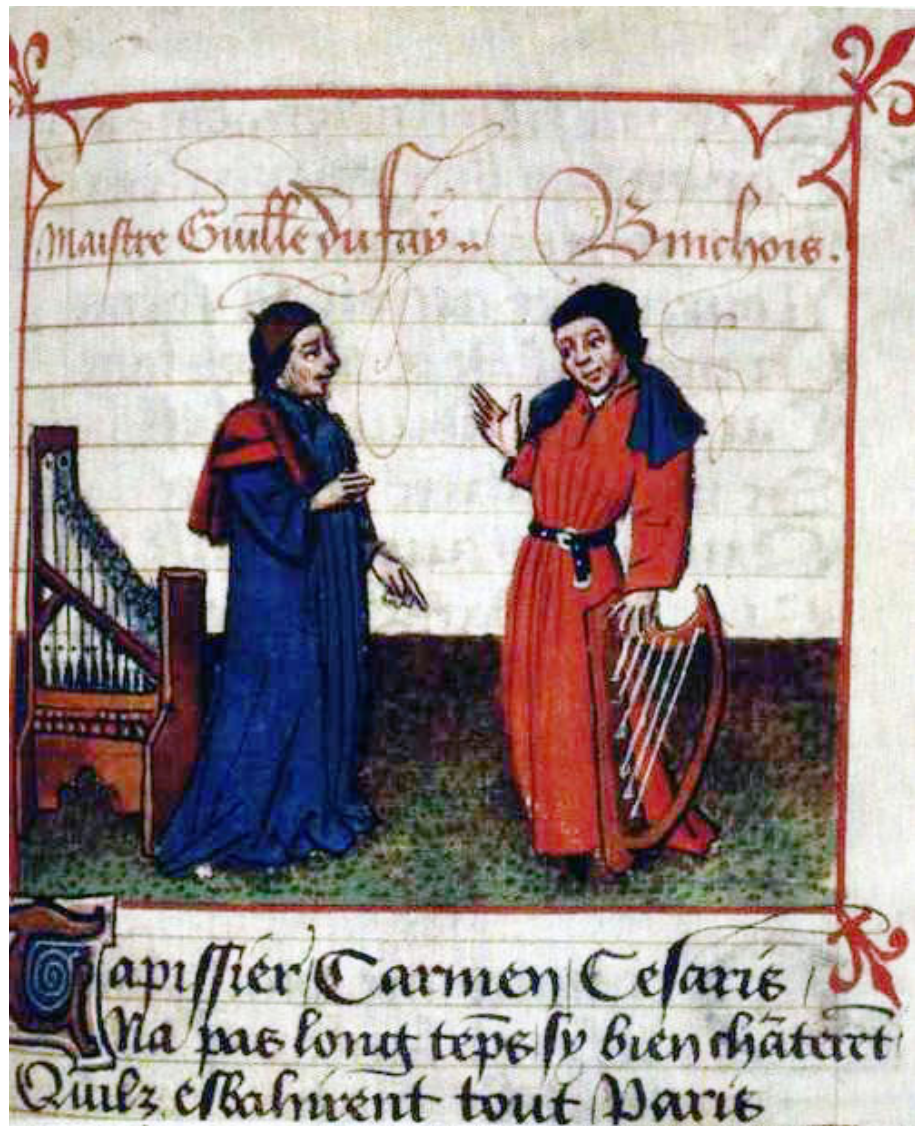 Maistre Guille du fay Binchois.
Tapissier / Carmen / Cesaris
Na pas long tēps sy bien chāterēt
Quilz esbahirent tout Paris